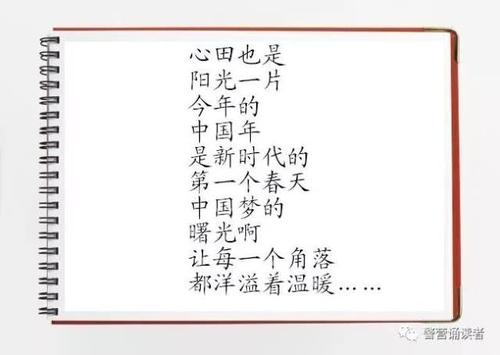 心田也是
阳光一片
今年的
中国年
是新时代的
第一个春天
中国梦的
曙光啊
让每一个角落
都洋溢着温暖……
警营诵读者